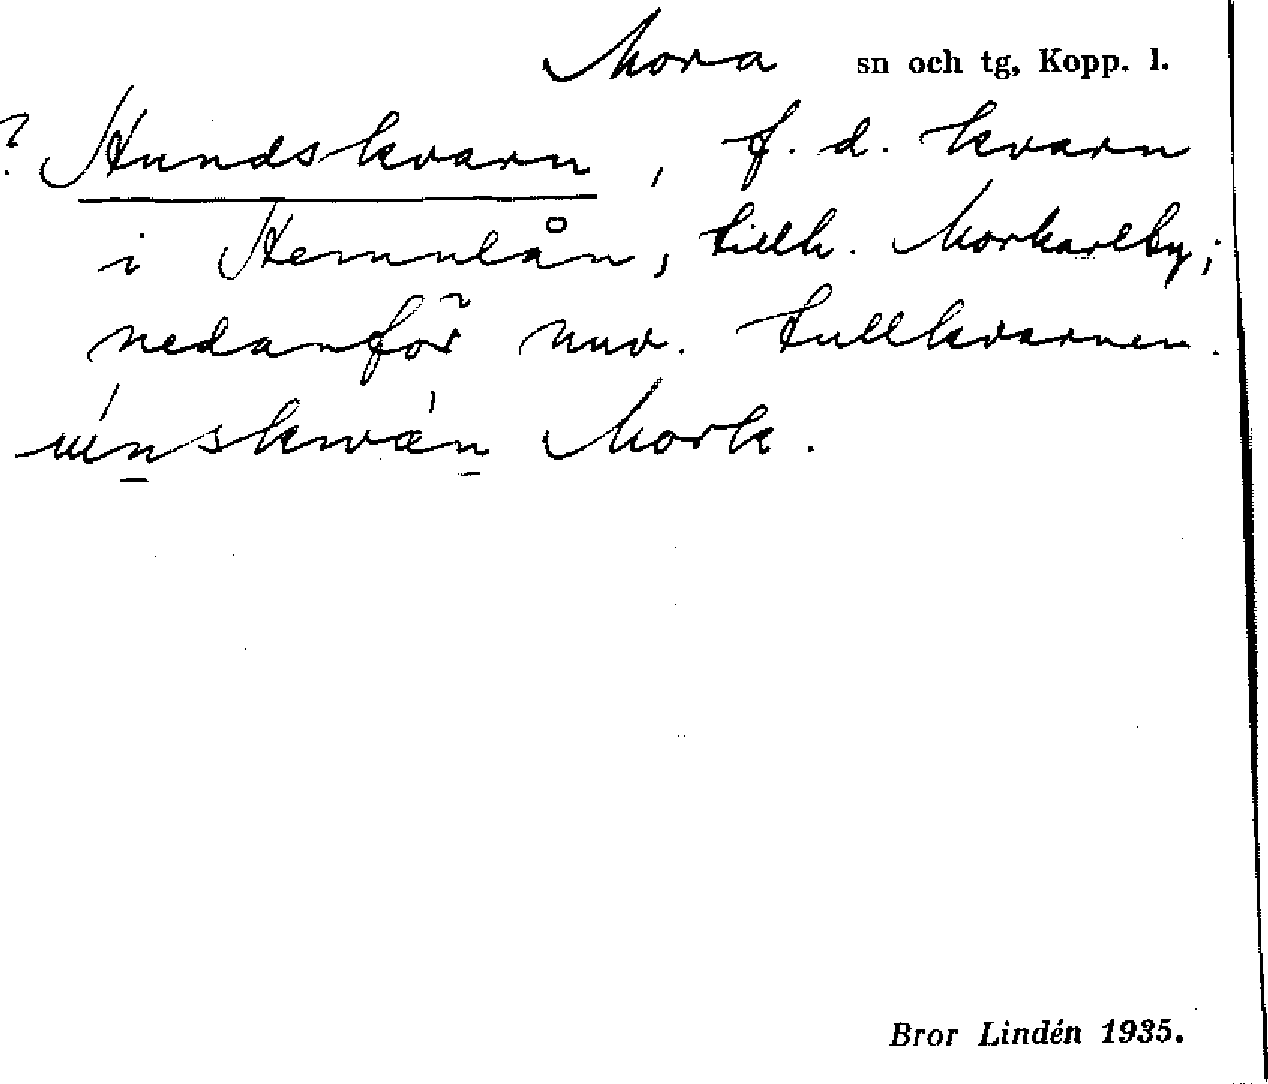 Mora sn och tg, Kopp. l.
? Hundskvarn, f. d. kvarn
i Hemulån, tillh. Morkarlby;
nedanför nuv. tullkvarnen.
Mork.
Bror Lindén 1935.